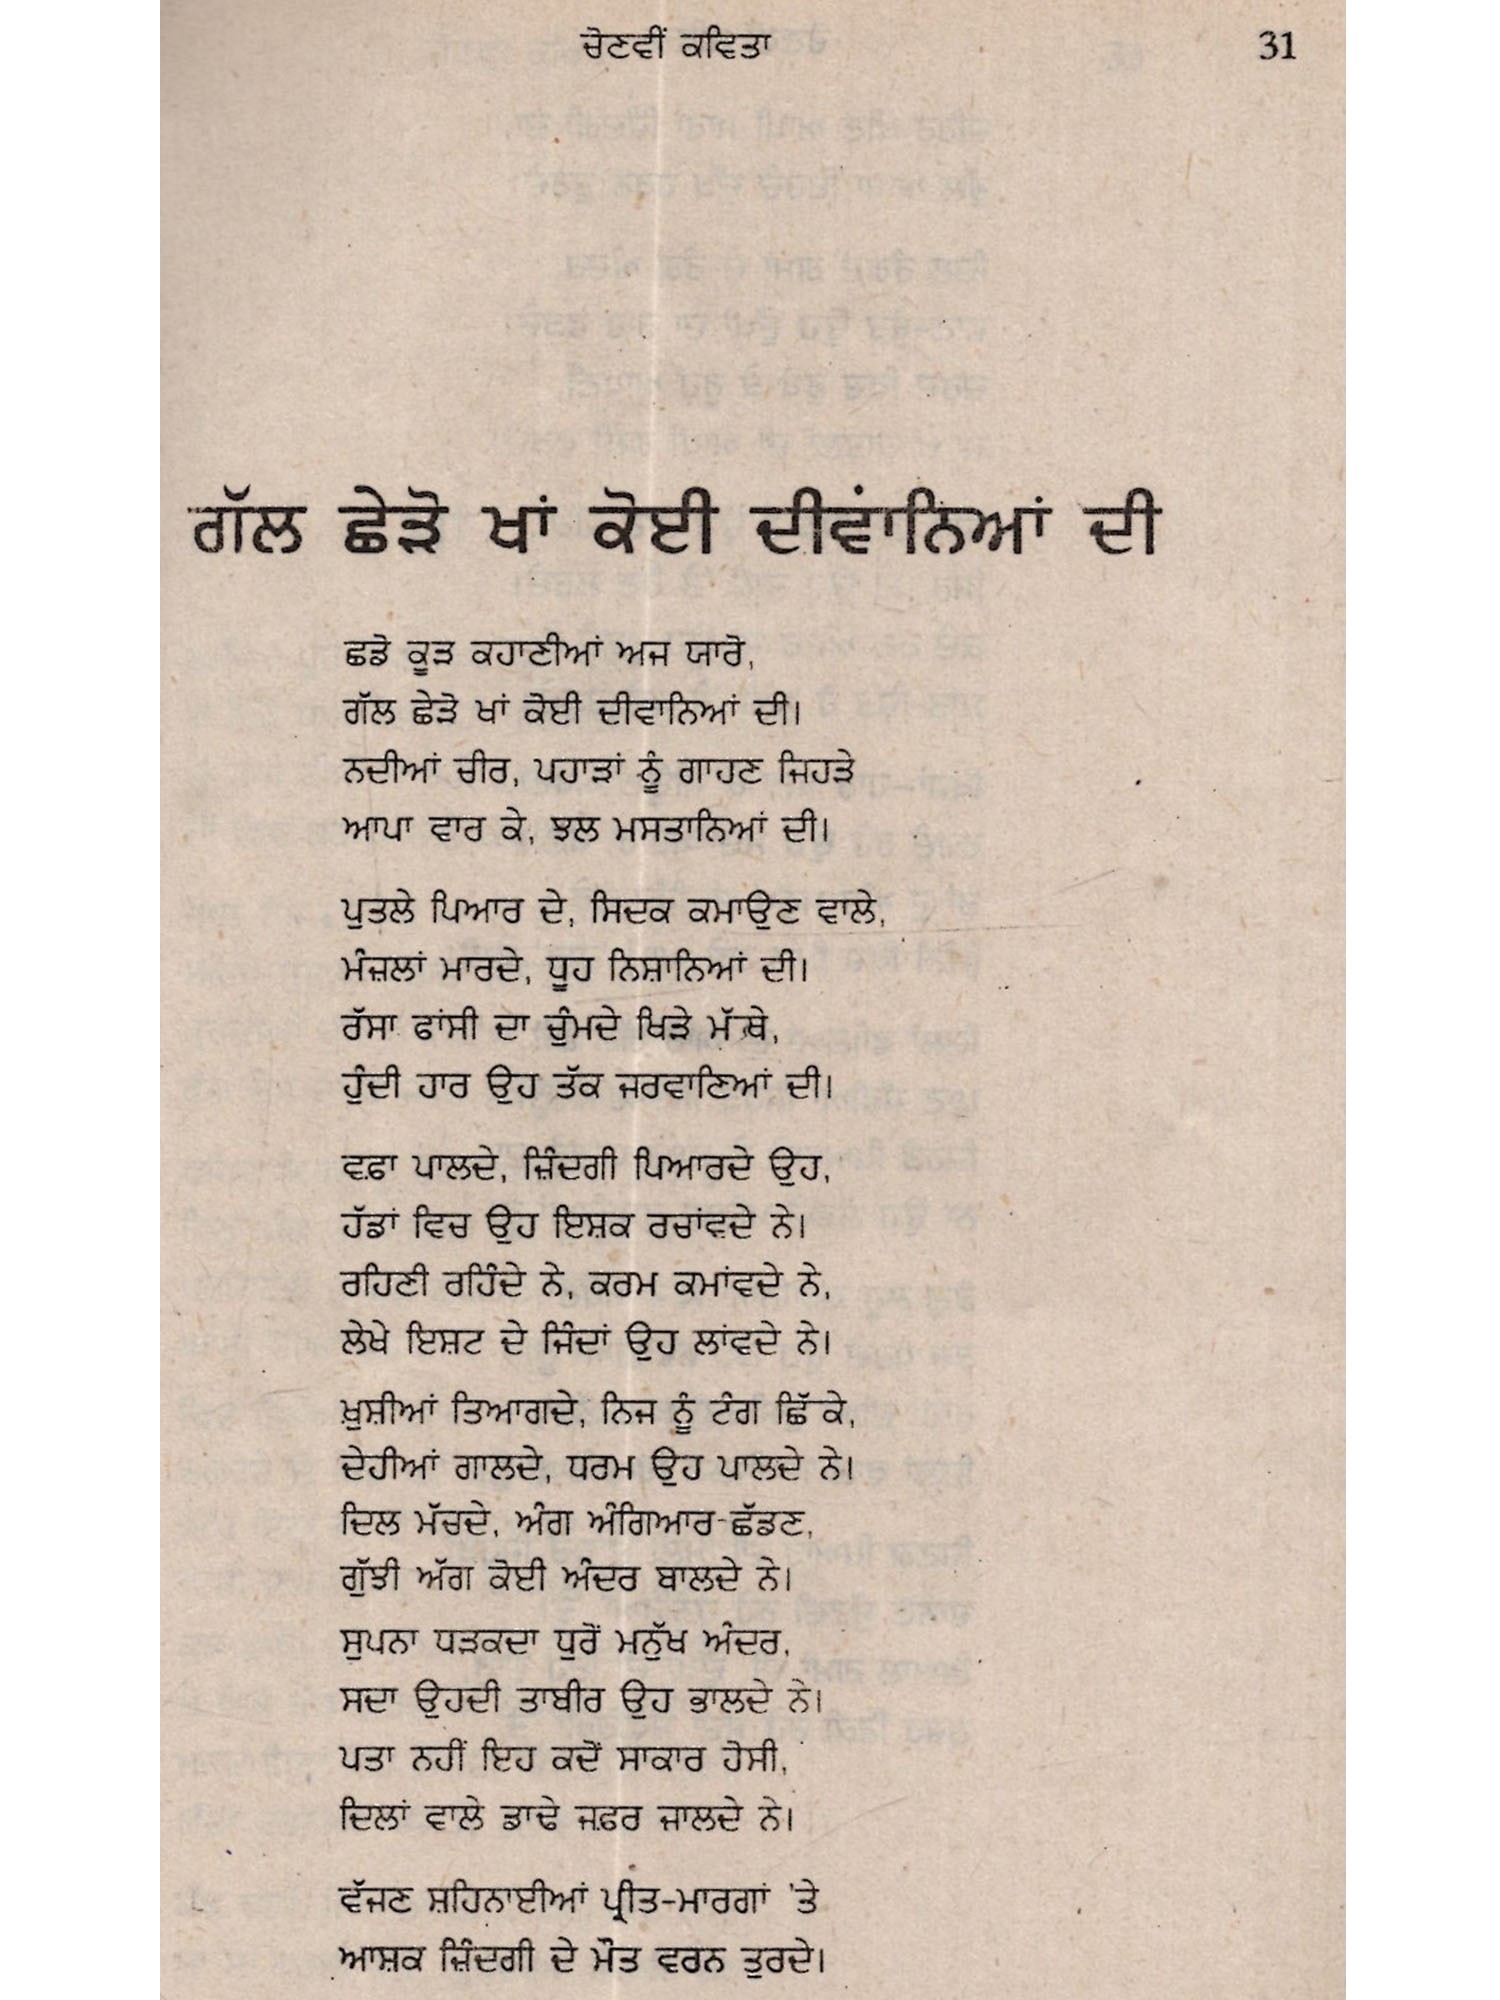 ਚੋਣਵੀਂ ਕਵਿਤਾ 31
ਗੱਲ ਛੇੜੋ ਖਾਂ ਕੋਈ ਦੀਵਾਨਿਆਂ ਦੀ
ਛਡੋ ਕੂੜ ਕਹਾਣੀਆਂ ਅਜ ਯਾਰੋ,
ਗੱਲ ਛੇੜੋ ਖਾਂ ਕੋਈ ਦੀਵਾਨਿਆਂ ਦੀ।
ਨਦੀਆਂ ਚੀਰ, ਪਹਾੜਾਂ ਨੂੰ ਗਾਹਣ ਜਿਹੜੇ
ਆਪਾ ਵਾਰ ਕੇ, ਝਲ ਮਸਤਾਨਿਆਂ ਦੀ।
ਪੁਤਲੇ ਪਿਆਰ ਦੇ, ਸਿਦਕ ਕਮਾਉਣ ਵਾਲੇ,
ਮੰਜ਼ਲਾਂ ਮਾਰਦੇ, ਧੂਹ ਨਿਸ਼ਾਨਿਆਂ ਦੀ।
ਰੱਸਾ ਫਾਂਸੀ ਦਾ ਚੁੰਮਦੇ ਖਿੜੇ ਮੱਥੇ,
ਹੁੰਦੀ ਹਾਰ ਉਹ ਤੱਕ ਜਰਵਾਣਿਆਂ ਦੀ।
ਵਫ਼ਾ ਪਾਲਦੇ, ਜ਼ਿੰਦਗੀ ਪਿਆਰਦੇ ਉਹ,
ਹੱਡਾਂ ਵਿਚ ਉਹ ਇਸ਼ਕ ਰਚਾਂਵਦੇ ਨੇ।
ਰਹਿਣੀ ਰਹਿੰਦੇ ਨੇ, ਕਰਮ ਕਮਾਂਵਦੇ ਨੇ,
ਲੇਖੇ ਇਸ਼ਟ ਦੇ ਜਿੰਦਾਂ ਉਹ ਲਾਂਵਦੇ ਨੇ।
ਖ਼ੁਸ਼ੀਆਂ ਤਿਆਗਦੇ, ਨਿਜ ਨੂੰ ਟੰਗ ਛਿੱਕੇ,
ਦੇਹੀਆਂ ਗਾਲਦੇ, ਧਰਮ ਉਹ ਪਾਲਦੇ ਨੇ।
ਦਿਲ ਮੱਚਦੇ, ਅੰਗ ਅੰਗਿਆਰ-ਛੱਡਣ,
ਗੁੱਝੀ ਅੱਗ ਕੋਈ ਅੰਦਰ ਬਾਲਦੇ ਨੇ।
ਸੁਪਨਾ ਧੜਕਦਾ ਧੁਰੋਂ ਮਨੁੱਖ ਅੰਦਰ,
ਸਦਾ ਉਹਦੀ ਤਾਬੀਰ ਉਹ ਭਾਲਦੇ ਨੇ।
ਪਤਾ ਨਹੀਂ ਇਹ ਕਦੋਂ ਸਾਕਾਰ ਹੋਸੀ,
ਦਿਲਾਂ ਵਾਲੇ ਡਾਢੇ ਜਫ਼ਰ ਜਾਲਦੇ ਨੇ।
ਵੱਜਣ ਸ਼ਹਿਨਾਈਆਂ ਪ੍ਰੀਤ-ਮਾਰਗਾਂ 'ਤੇ
ਆਸ਼ਕ ਜ਼ਿੰਦਗੀ ਦੇ ਮੌਤ ਵਰਨ ਤੁਰਦੇ।